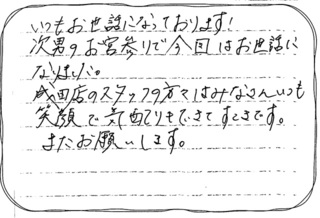 いつもお世話になっております!
次男のお宮参りで今回はお世話に
なりました。
成田店のスタッフの方々はみなさんいつも
笑顔で気配りもできてすてきです。
またお願いします。